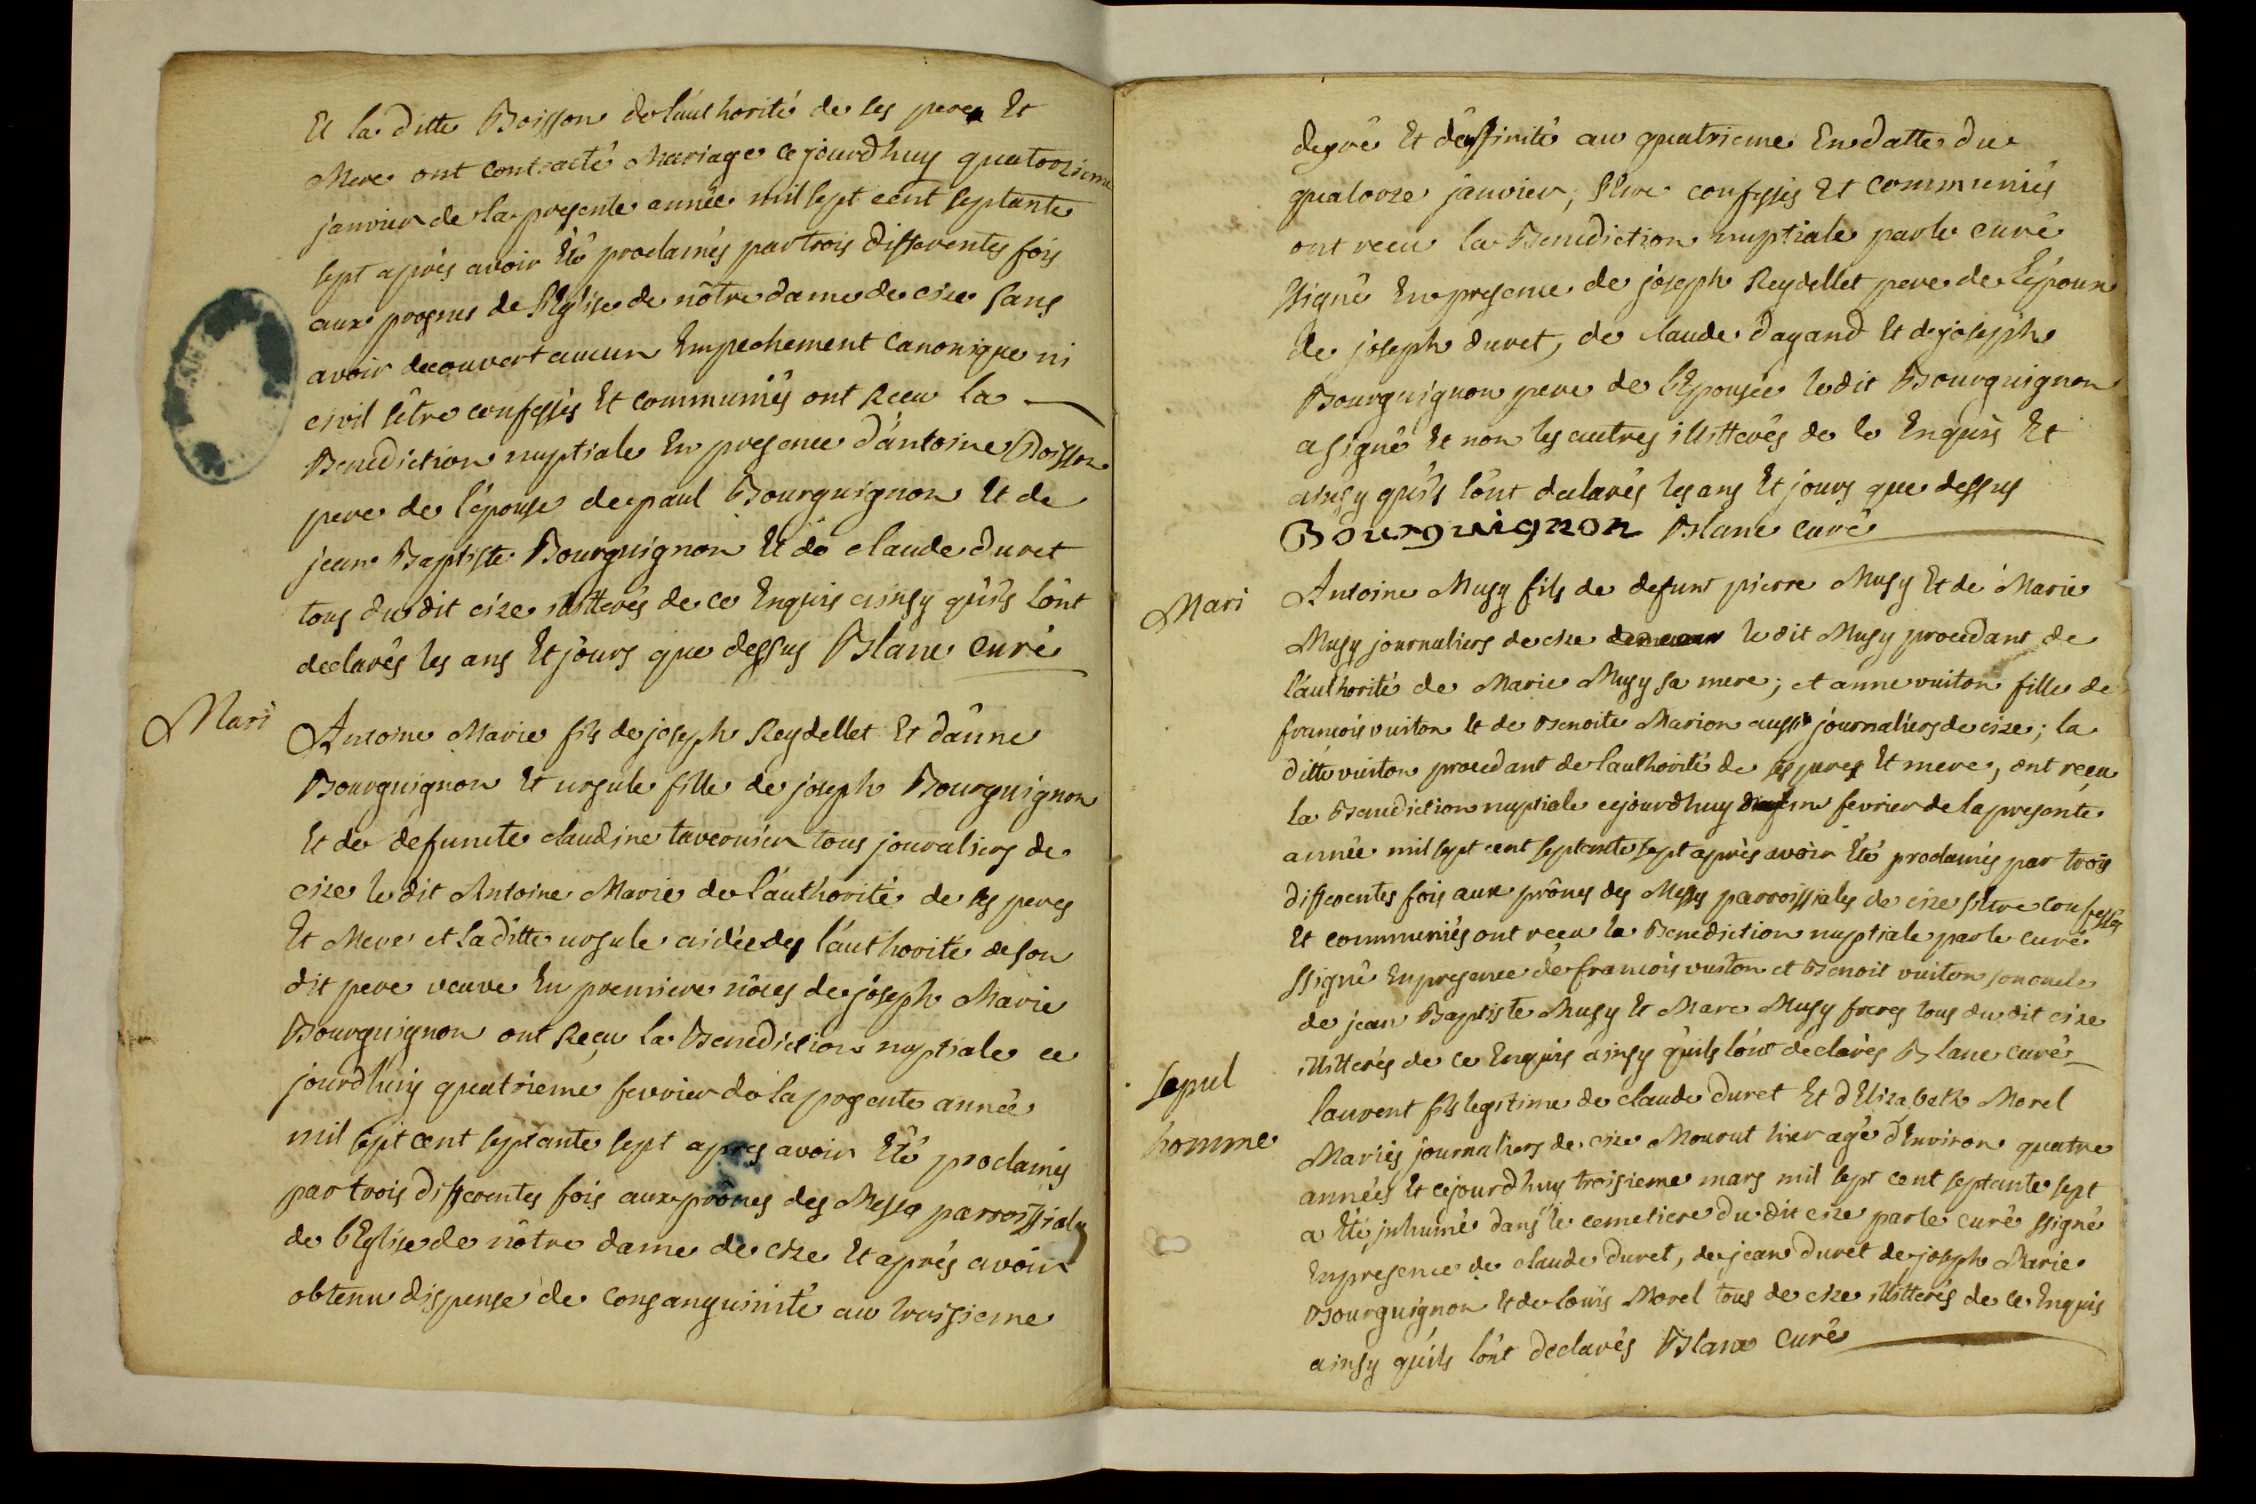 Et la ditte Boisson de l'authorité de ses peres Et
Mere ont contracté Mariage ce jourdhuy quatorzieme
janvier de la presente année mil sept cent septante
sept aprés avoir Eté proclamés par trois differentes fois
aux prosnes de l'Eglise de nôtre dame de cize sans
avoir decouvert aucun Empechement canonique ni
civil s'être confessés Et communiés ont Receu la
Benediction nuptiale En presence d'antoine Boisson
pere de l'épouse de paul Bourguignon Et de
jean Baptiste Bourguignon Et de claude duret
tous du dit cize illitterés de ce Enquis ainsy qu'ils l'ont
declarés les ans Et jours que dessus Blanc curé
Mari
Antoine Marie fils de joseph Reydellet Et d'anne
Bourguignon Et ursule fille de joseph Bourguignon
Et de defuncte claudine tavernier tous journaliers de
cize le dit Antoine Marie de l'authorité de ses peres
Et Mere et la ditte ursule aidée des l'authorité de son
dit pere veuve En premiere nôces de joseph Marie
Bourguignon ont Reçu la Benediction nuptiale ce
jourdhuy quatrieme fevrier de la presente année
mil sept cent septante sept apres avoir Eté proclamés
par trois differentes fois aux prônes des Messes parroissiales
de l'Eglise de nôtre dame de cize Et aprés avoir
obtenu dispense de consanguinité au troisieme
degré Et d'affinité au quatrieme En datte du
quatorze janvier, s'etre confessés Et communiés
ont receu la Benediction nuptiale par le curé
ssigné En presence de joseph Reydellet pere de l'époux
de joseph duret, de claude dagand Et de joseph
Bourguignon pere de l'Epousée le dit Bourguignon
a signé Et non les autres illitterés de le Enquis Et
ainsy qu'ils l'ont declarés les ans Et jours que dessus
Bourguignon Blanc curé
Mari
Antoine Musy fils de defunt pierre Musy Et de Marie
Musy journaliers de cize le dit Musy procedant de
l'authorité de Marie Musy sa mere; et anne vuiton fille de
francois vuiton Et de Benoite Marion aussi journaliers de cize; la
ditte vuiton procedant de l'authorité de ses peres Et mere, ont reçu
la Benediction nuptiale cejourdhuy fevrier de la presente
année mil sept cent septante sept après avoir Eté proclamés par trois
differentes fois aux prônes des Messes parroissiales de cize s'etre confessés
Et communiés ont receu la Benediction nuptiale par le curé
ssigné En presence de francois vuiton et Benoit vuiton son oncle
de jean Baptiste Musy Et Marc Musy freres tous du dit cize
illitterés de ce Enquis ainsy qu'ils l'ont declarés Blanc curé
sepul
homme
laurent fils legitime de claude duret Et d'Elizabeth Morel
Mariés journaliers de cize Mourut hier agé d'Environ quatre
années Et cejourdhuy troisieme mars mil sept cent septante sept
a Eté inhumé dans le cemetiere du dit cize par le curé ssigné
En presence de claude duret, de jean duret de joseph Marie
Bourguignon Et de loüis Morel tous de cize illitterés de ce Enquis
ainsy qu'ils l'ont declarés Blanc curé